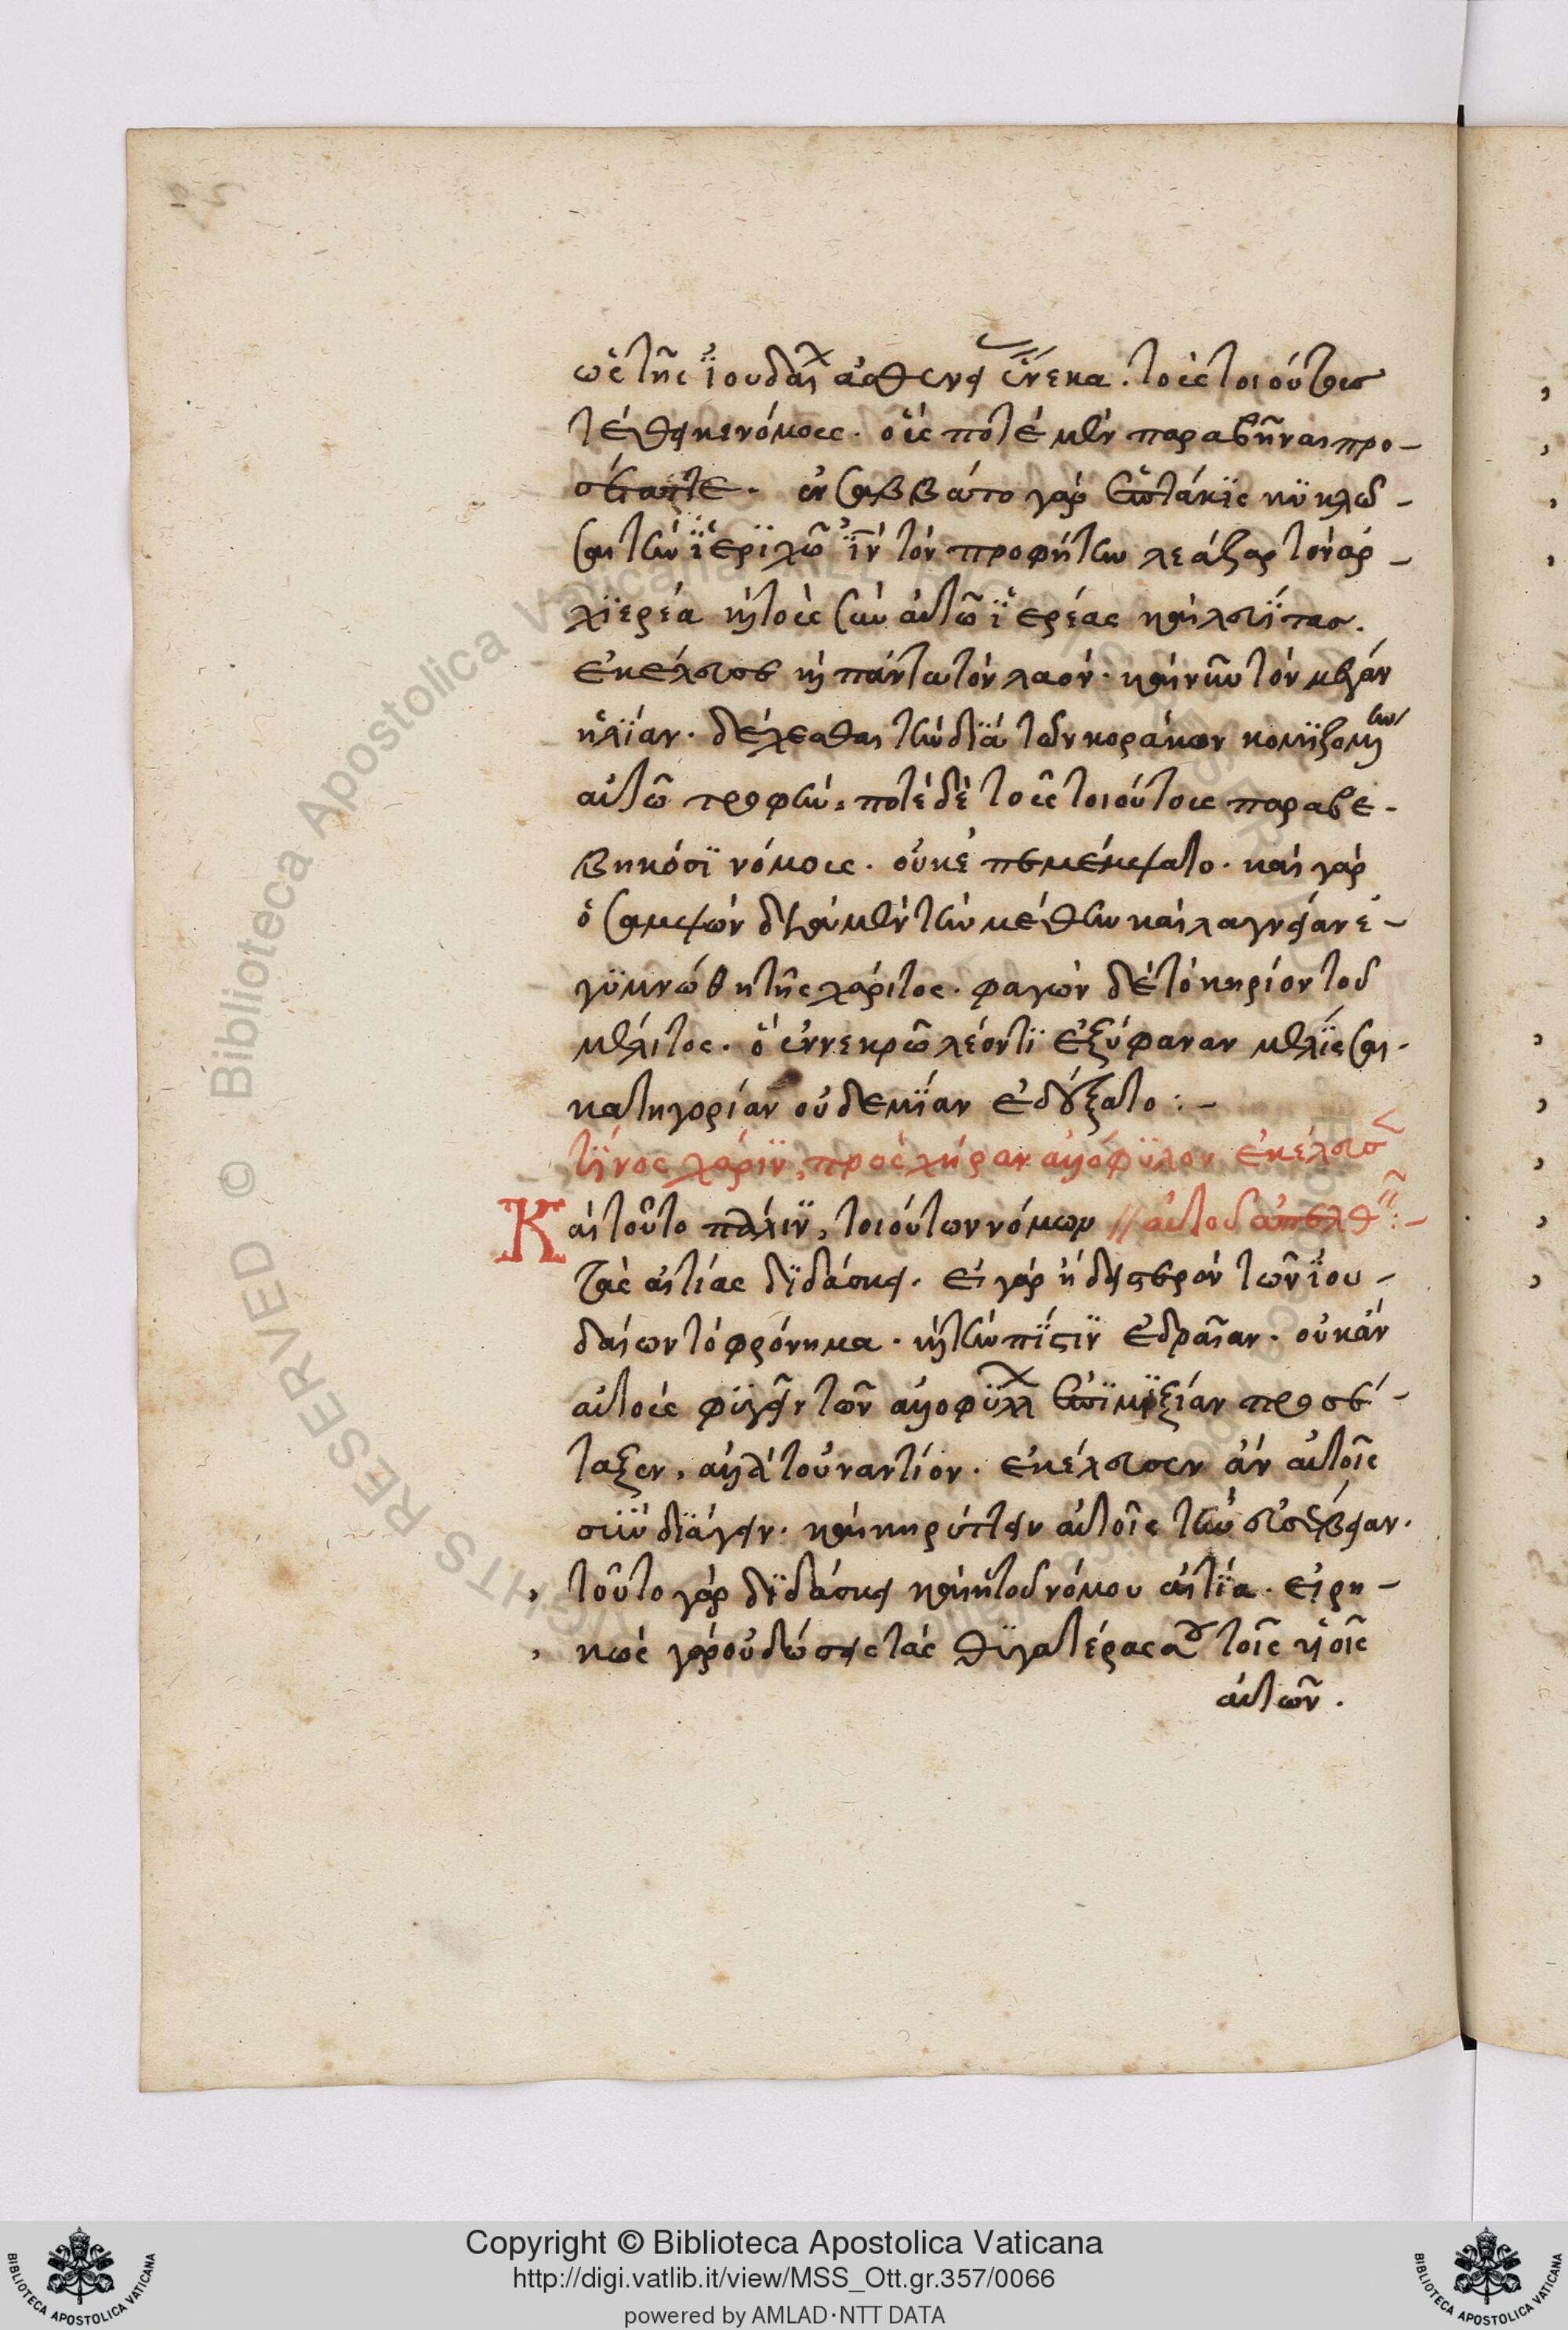 ὡς τῆς ἰουδαί ἀσθενεί ἕνεκα. τοὺς τοιούτους
τέθεικε νόμους. οὓς ποτὲ μὲν παραβῆναι προ-
σέταττε. ἐν σαββάτω γὰρ ἑπτάκϊς κϋκλω-
σαι τὴν ϊεριχῶ ϊν τὸν προφήτην λε άξας τὸν ἀρ-
χϊερέα καὶ τοὺς σὺν αὐτῶ ϊερέας καὶ λευΐτας.
ἐκέλευσε καὶ πάντα τὸν λαόν. καὶ νῦν τὸν μέγαν
ἠλΐαν. δέχεσθαι τὴν δϊὰ τῶν κοράκων κομϊζομένην
αὐτῶ τροφήν, ποτὲ δὲ τοῖς τοιούτοις παραβε-
βηκόσϊ νόμοις. οὐκ ἐπεμέμψατο. καὶ γὰρ
ὁ σαμψών διὰ μὲν τὴν μέθην καὶ λαγνείαν ἐ-
γϋμνώθη τῆς χάριτος. φαγὼν δὲ τὸ κηρίον τοῦ
μέλιτος. ὃ ἐν νεκρῶ λέοντϊ ἐξύφαναν μέλϊσσαι.
κατηγορίαν οὐδεμΐαν ἐδέξατο:-
τΐνος χάρϊν, πρὸς χήραν ἀλλόφϋλον ἐκέλευσ
Καὶ τοῦτο πάλιν, τοιούτων νόμων // αὐτὸν ἀπελθεῖν:-
τὰς αἰτίας δϊδάσκει. εἰ γὰρ ᾔδει στερρὸν τῶν ϊου-
δαίων τὸ φρόνημα. καὶ τὴν πΐστϊν ἑδραίαν. οὐκ ἂν
αὐτοὺς φϋγεῖν τῶν ἀλλοφϋλ ἐπϊμϊξίαν προσέ-
ταξεν, ἀλλὰ τοὐναντίον. ἐκέλευσεν ἂν αὐτοῖς
σϋνδϊάγειν. καὶ κηρύττειν αὐτοῖς τὴν εὐσέβειαν.
, τοῦτο γὰρ δϊδάσκει καὶ ἡ τοῦ νόμου αἰτΐα. εἰρη-
, κὼς γὰρ οὐ δώσεις τὰς θϋγατέρας σου τοῖς υἱοῖς
αὐτῶν.
Copyright © Biblioteca Apostolica Vaticana
http://digi.vatlib.it/view/MSS_Ott.gr.357/0066
powered by AMLAD·NTT DATA